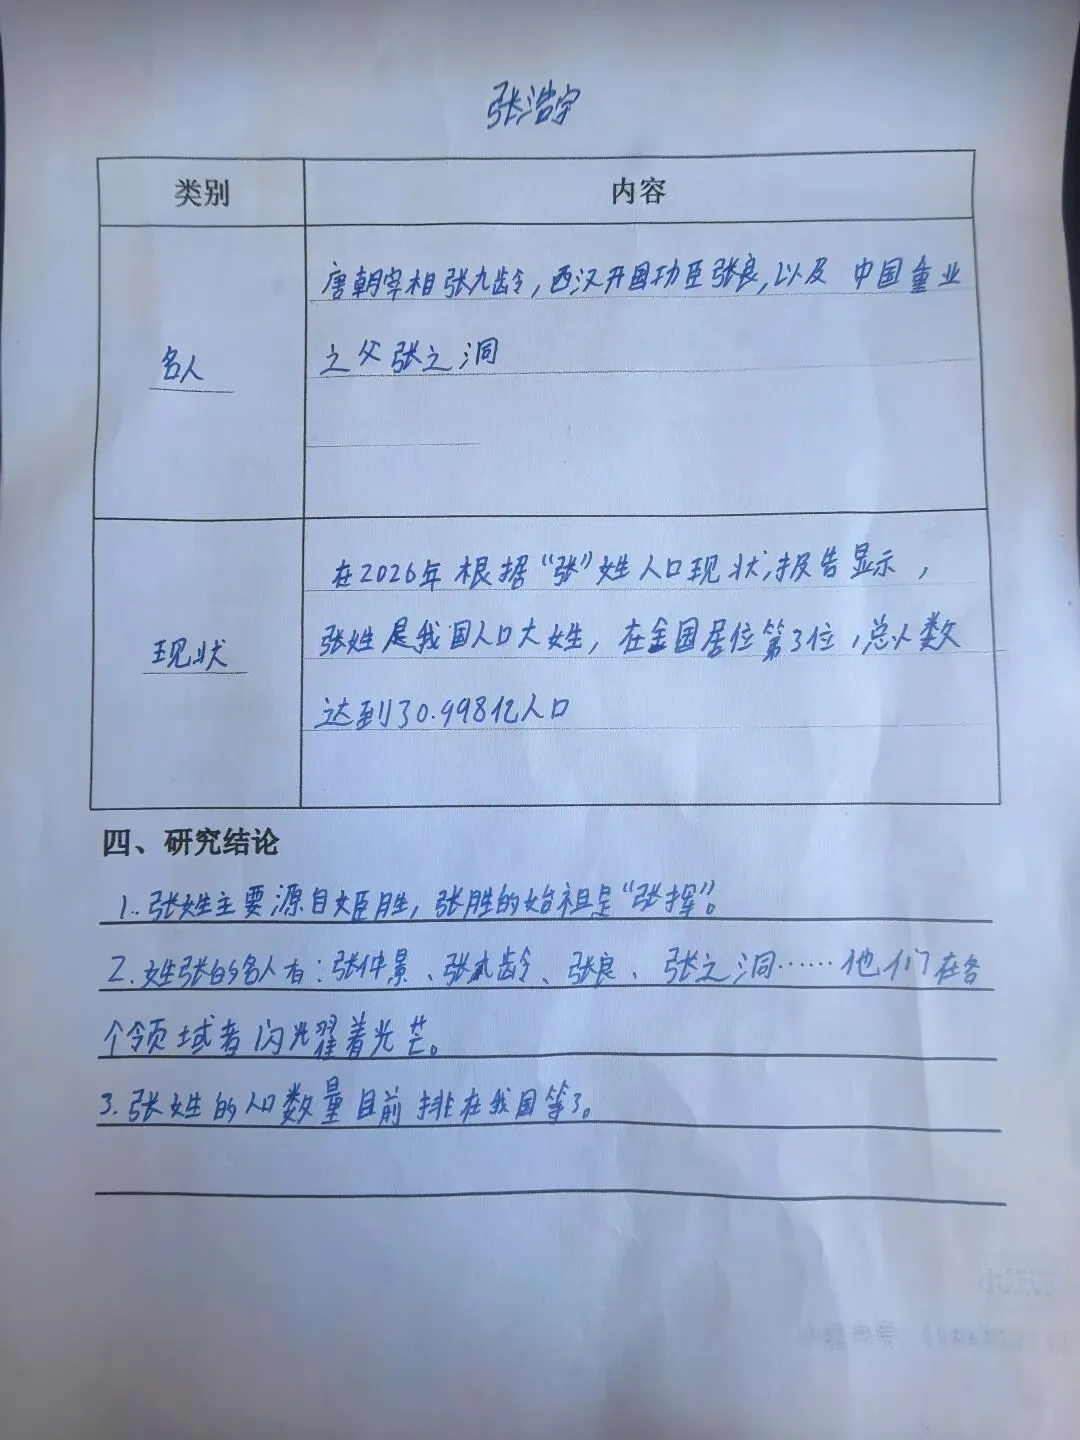 张浩宇
类别 内容
唐朝宰相张九龄，西汉开国功臣张良，以及 中国重业
名人
之父张之洞
在2026年根据“张”姓人口现状，报告显示，
张姓是我国人口大姓，在全国居位第3位，总人数
现状
达到30.998亿人口
四、研究结论
1..张姓主要源自姬胜，张胜的始祖是“张挥”。
2.姓张的名人有：张仲景、张九龄、张良、张之洞……他们在各
个领域者闪光耀着光芒。
3.张姓的人口数量目前排在我国等3。